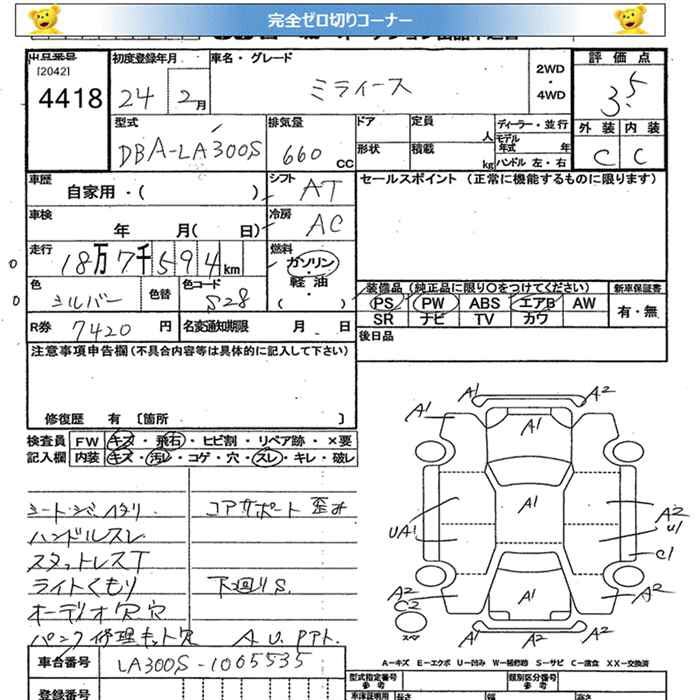 完全ゼロ切りコーナー
[2042]
4418
初度登録年月
24年 2月
車名・グレード
ミライース
2WD
・
4WD
評価点
3.5
外装 内装
C C
型式
DBA-LA300S
排気量
660 CC
ドア
形状
定員 人
積載 kg
ディーラー・並行
モデル年式 年
ハンドル 左・右
車歴
自家用・( )
シフト AT
セールスポイント (正常に機能するものに限ります)
車検 年 月( 日)
冷房 AC
走行 18万7千594km
燃料
ガソリン・
軽油・
( )
色 シルバー
色替
色コード S28
装備品(純正品に限り○をつけてください)
PS PW ABS エアB AW
SR ナビ TV カワ
新車保証書
有・無
R券 7420円
名変通知期限 月 日
後日品
注意事項申告欄(不具合内容等は具体的に記入して下さい)
修復歴 有 [箇所 ]
検査員記入欄
FW キズ・飛石・ヒビ割・リペア跡・×要
内装 キズ・汚レ・コゲ・穴・スレ・キレ・破レ
コアサポート 歪み
ハンドルスレ
スタットレスT
ライトくもり
下回りS.
オーディオ欠穴
パンク修理キット欠
A.U.
車台番号 LA300S-1005535
登録番号
A1 A2
A1 A1 A2
A1
UA1
A2
U1
C1
A2
C2
A1
A2
A1 A2
スペア
A…キズ E…エクボ U…凹み W…補修跡 S…サビ C…腐食 XX…交換済
型式指定番号
参考
類別区分番号
参考
車庫証明用 長さ 幅 高さ